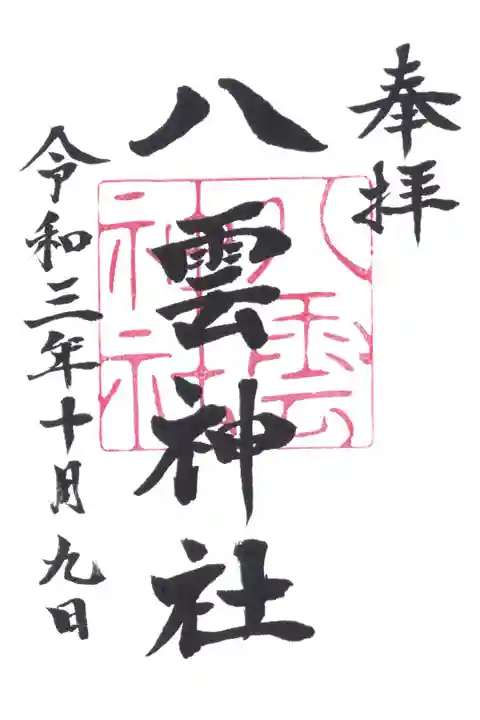 奉拝
八雲神社
八雲神社
令和三年十月九日